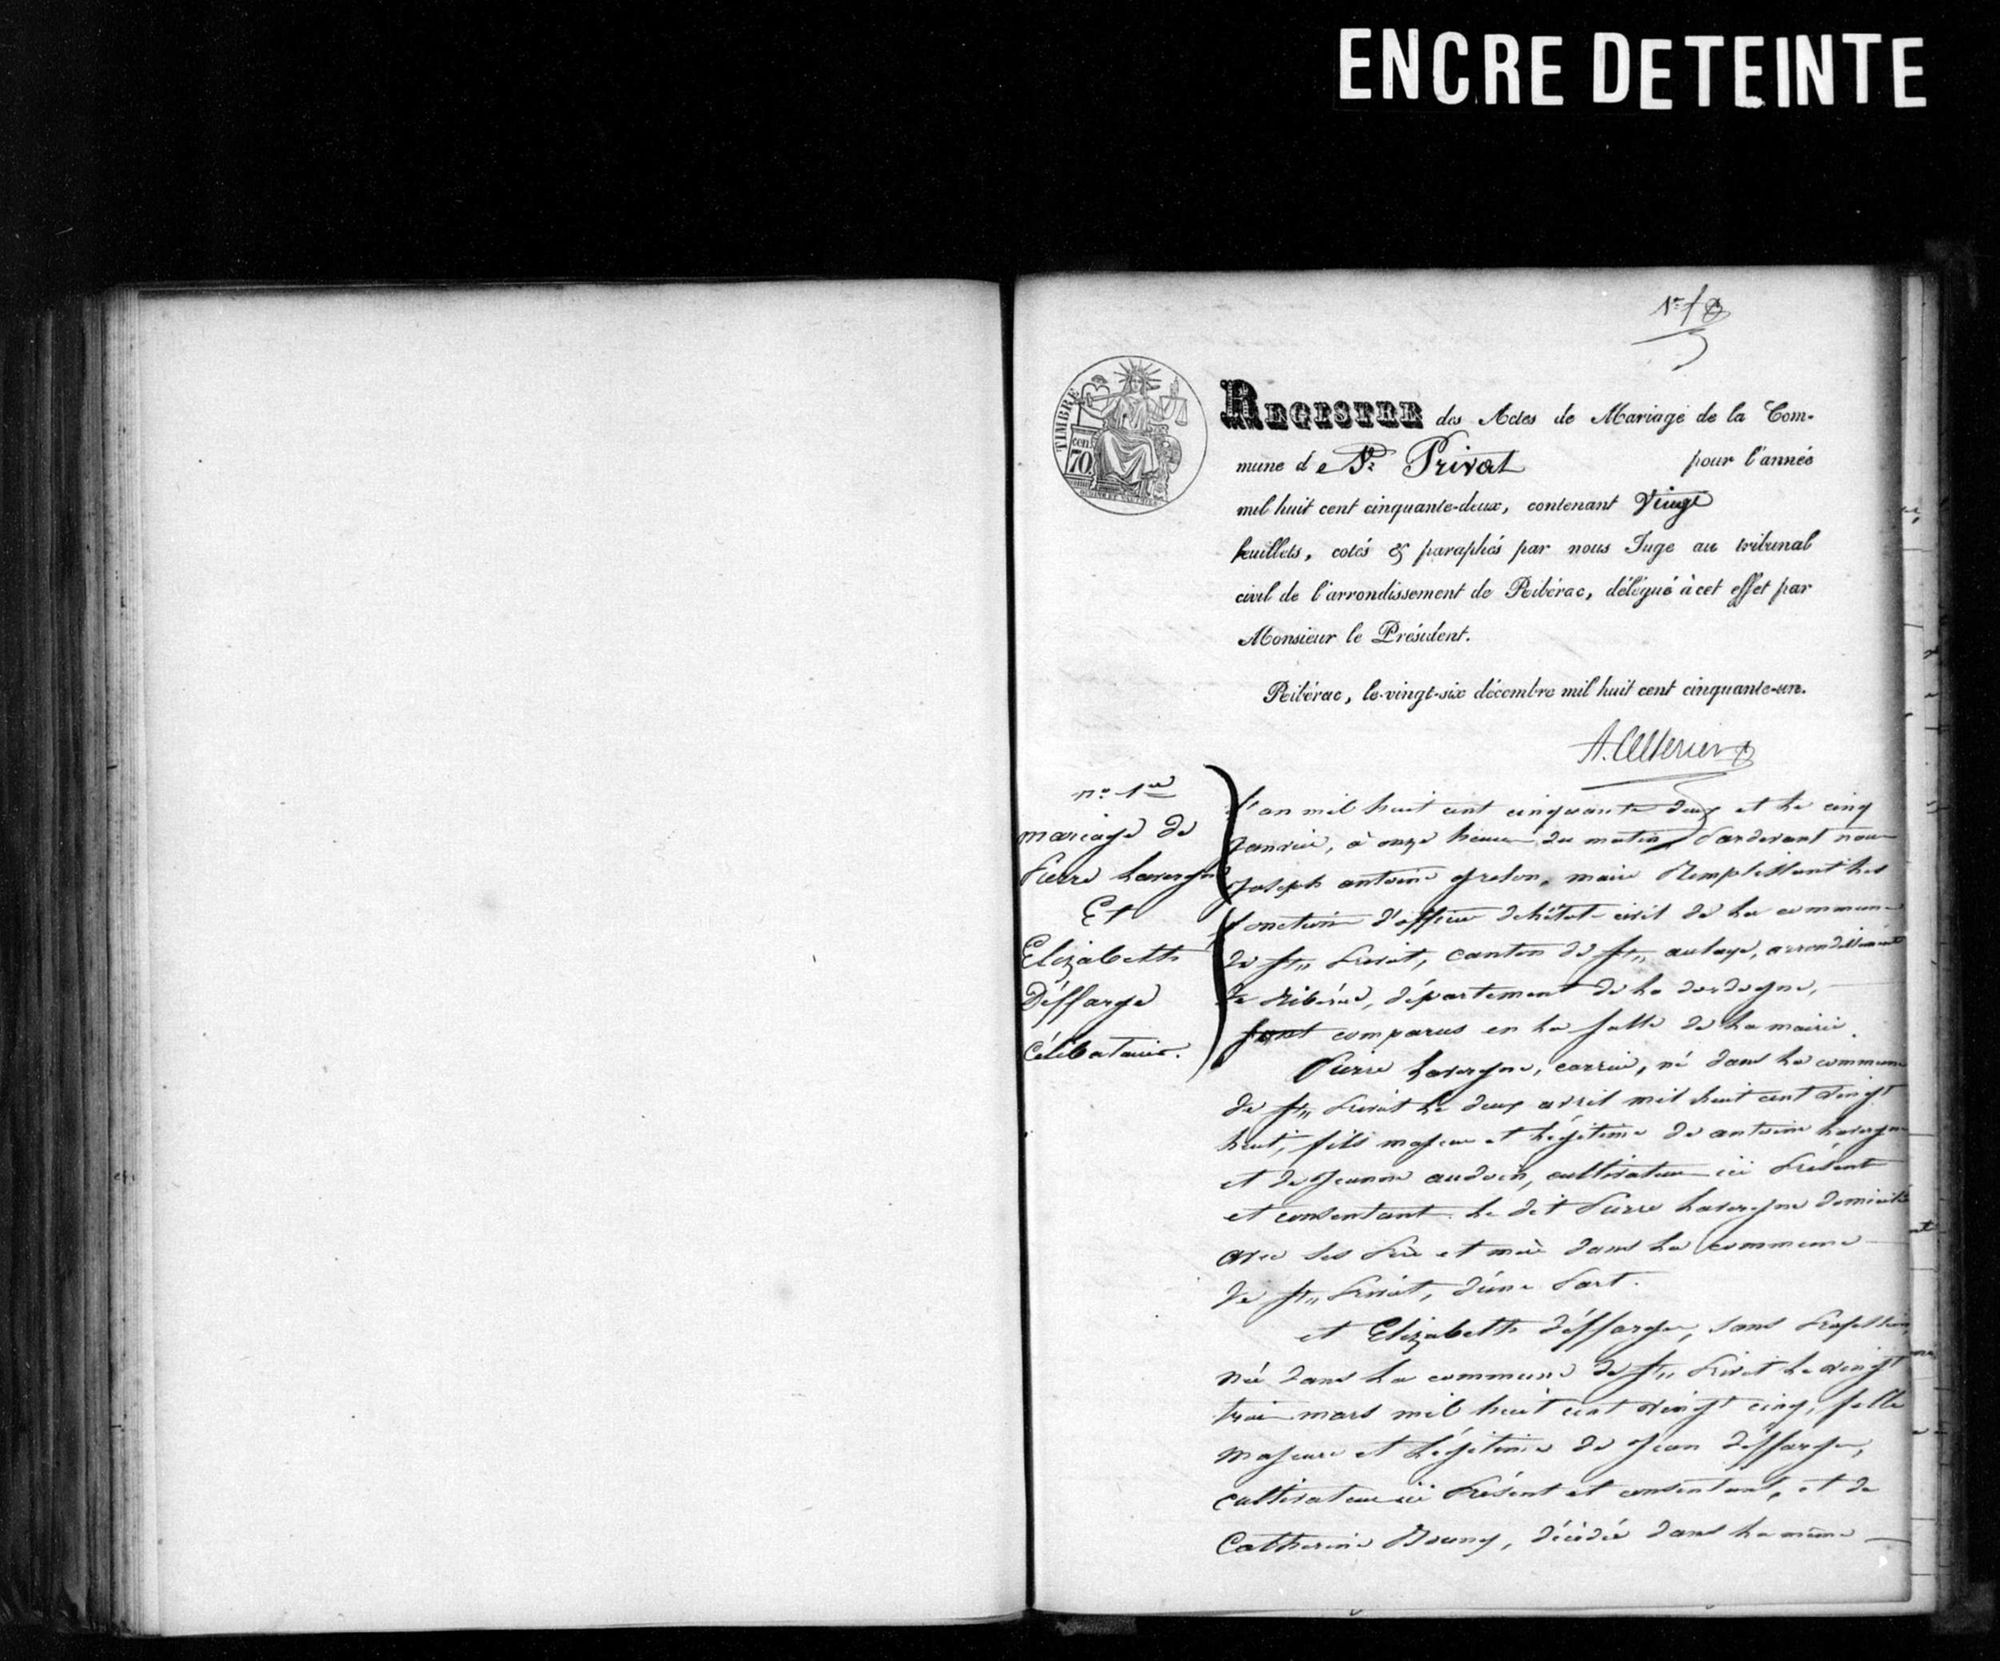 ENCRE DETEINTE
TIMBRE
cen.
70.
REGISTRE des Actes de Mariage de la Com-
mune de St Privat pour l'année
mil huit cent cinquante-deux, contenant Vingt
feuillets, cotés & paraphés par nous Juge au tribunal
civil de l'arrondissement de Ribérac, délégué à cet effet par
Monsieur le Président.
Ribérac, le vingt-six décembre mil huit cent cinquante-un.
no 1er
mariage de
Pierre Lavergne
Et
Elizabeth
Déffarge
Célibataire.
L'an mil huit cent cinquante deux et le cinq
Janvier, à onze heures du matin, Pardevant nous
Joseph antoine Grelon, maire Remplissant les
fonctions d'officier de l'état civil de La commune
de St. Privat, canton de St. aulaye, arrondissement
de Ribérac, département de La dordogne,
sont comparus en La salle de La mairie.
Pierre Lavergne, carrier, né dans La commune
de St. Privat Le deux avril mil huit cent vingt
huit, fils majeur et Légitime de antoine Lavergne
et de Jeanne audoin, cultivateurs ici Présent
et consentant. Le dit Pierre Lavergne domicilié
avec ses Père et mère dans La commune
de St. Privat, d'une Part.
et Elizabeth déffarge, sans Profession,
née dans La commune de St. Privat Le vingt
trois mars mil huit cent vingt cinq, fille
majeure et Légitime de Jean déffarge,
cultivateur ici Présent et consentant, et de
Catherine , décédée dans La même